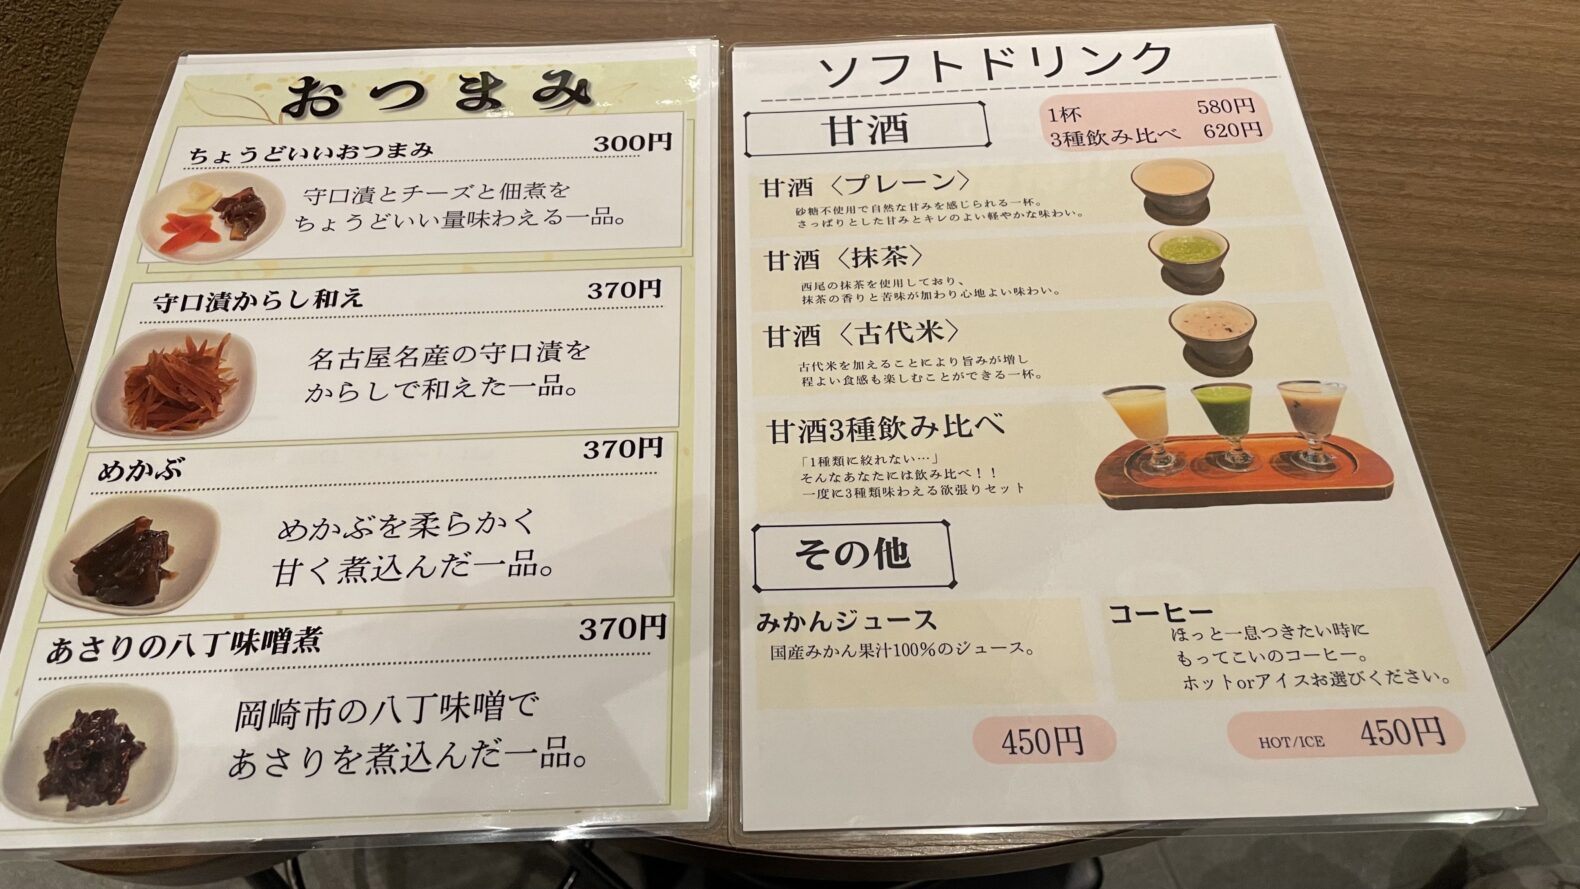 おつまみ
ちょうどいいおつまみ 300円
守口漬とチーズと佃煮を
ちょうどいい量味わえる一品。
守口漬からし和え 370円
名古屋名産の守口漬を
からしで和えた一品。
めかぶ 370円
めかぶを柔らかく
甘く煮込んだ一品。
あさりの八丁味噌煮 370円
岡崎市の八丁味噌で
あさりを煮込んだ一品。
ソフトドリンク
甘酒
1杯 580円
3種飲み比べ 620円
甘酒〈プレーン〉
砂糖不使用で自然な甘みを感じられる一杯。
さっぱりとした甘みとキレのよい軽やかな味わい。
甘酒〈抹茶〉
西尾の抹茶を使用しており、
抹茶の香りと苦味が加わり心地よい味わい。
甘酒〈古代米〉
古代米を加えることにより旨みが増し
程よい食感も楽しむことができる一杯。
甘酒3種飲み比べ
「1種類に絞れない…」
そんなあなたには飲み比べ！！
一度に3種類味わえる欲張りセット
その他
みかんジュース
国産みかん果汁100%のジュース。
450円
コーヒー
ほっと一息つきたい時に
もってこいのコーヒー。
ホットorアイスお選びください。
HOT/ICE 450円